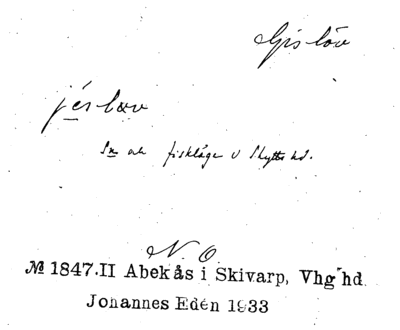 Gislöv
jéslov
Sn och fiskläge i Skytts hd.
N. O.
№ 1847.II Abekås i Skivarp, Vhg hd.
Johannes Edén 1933